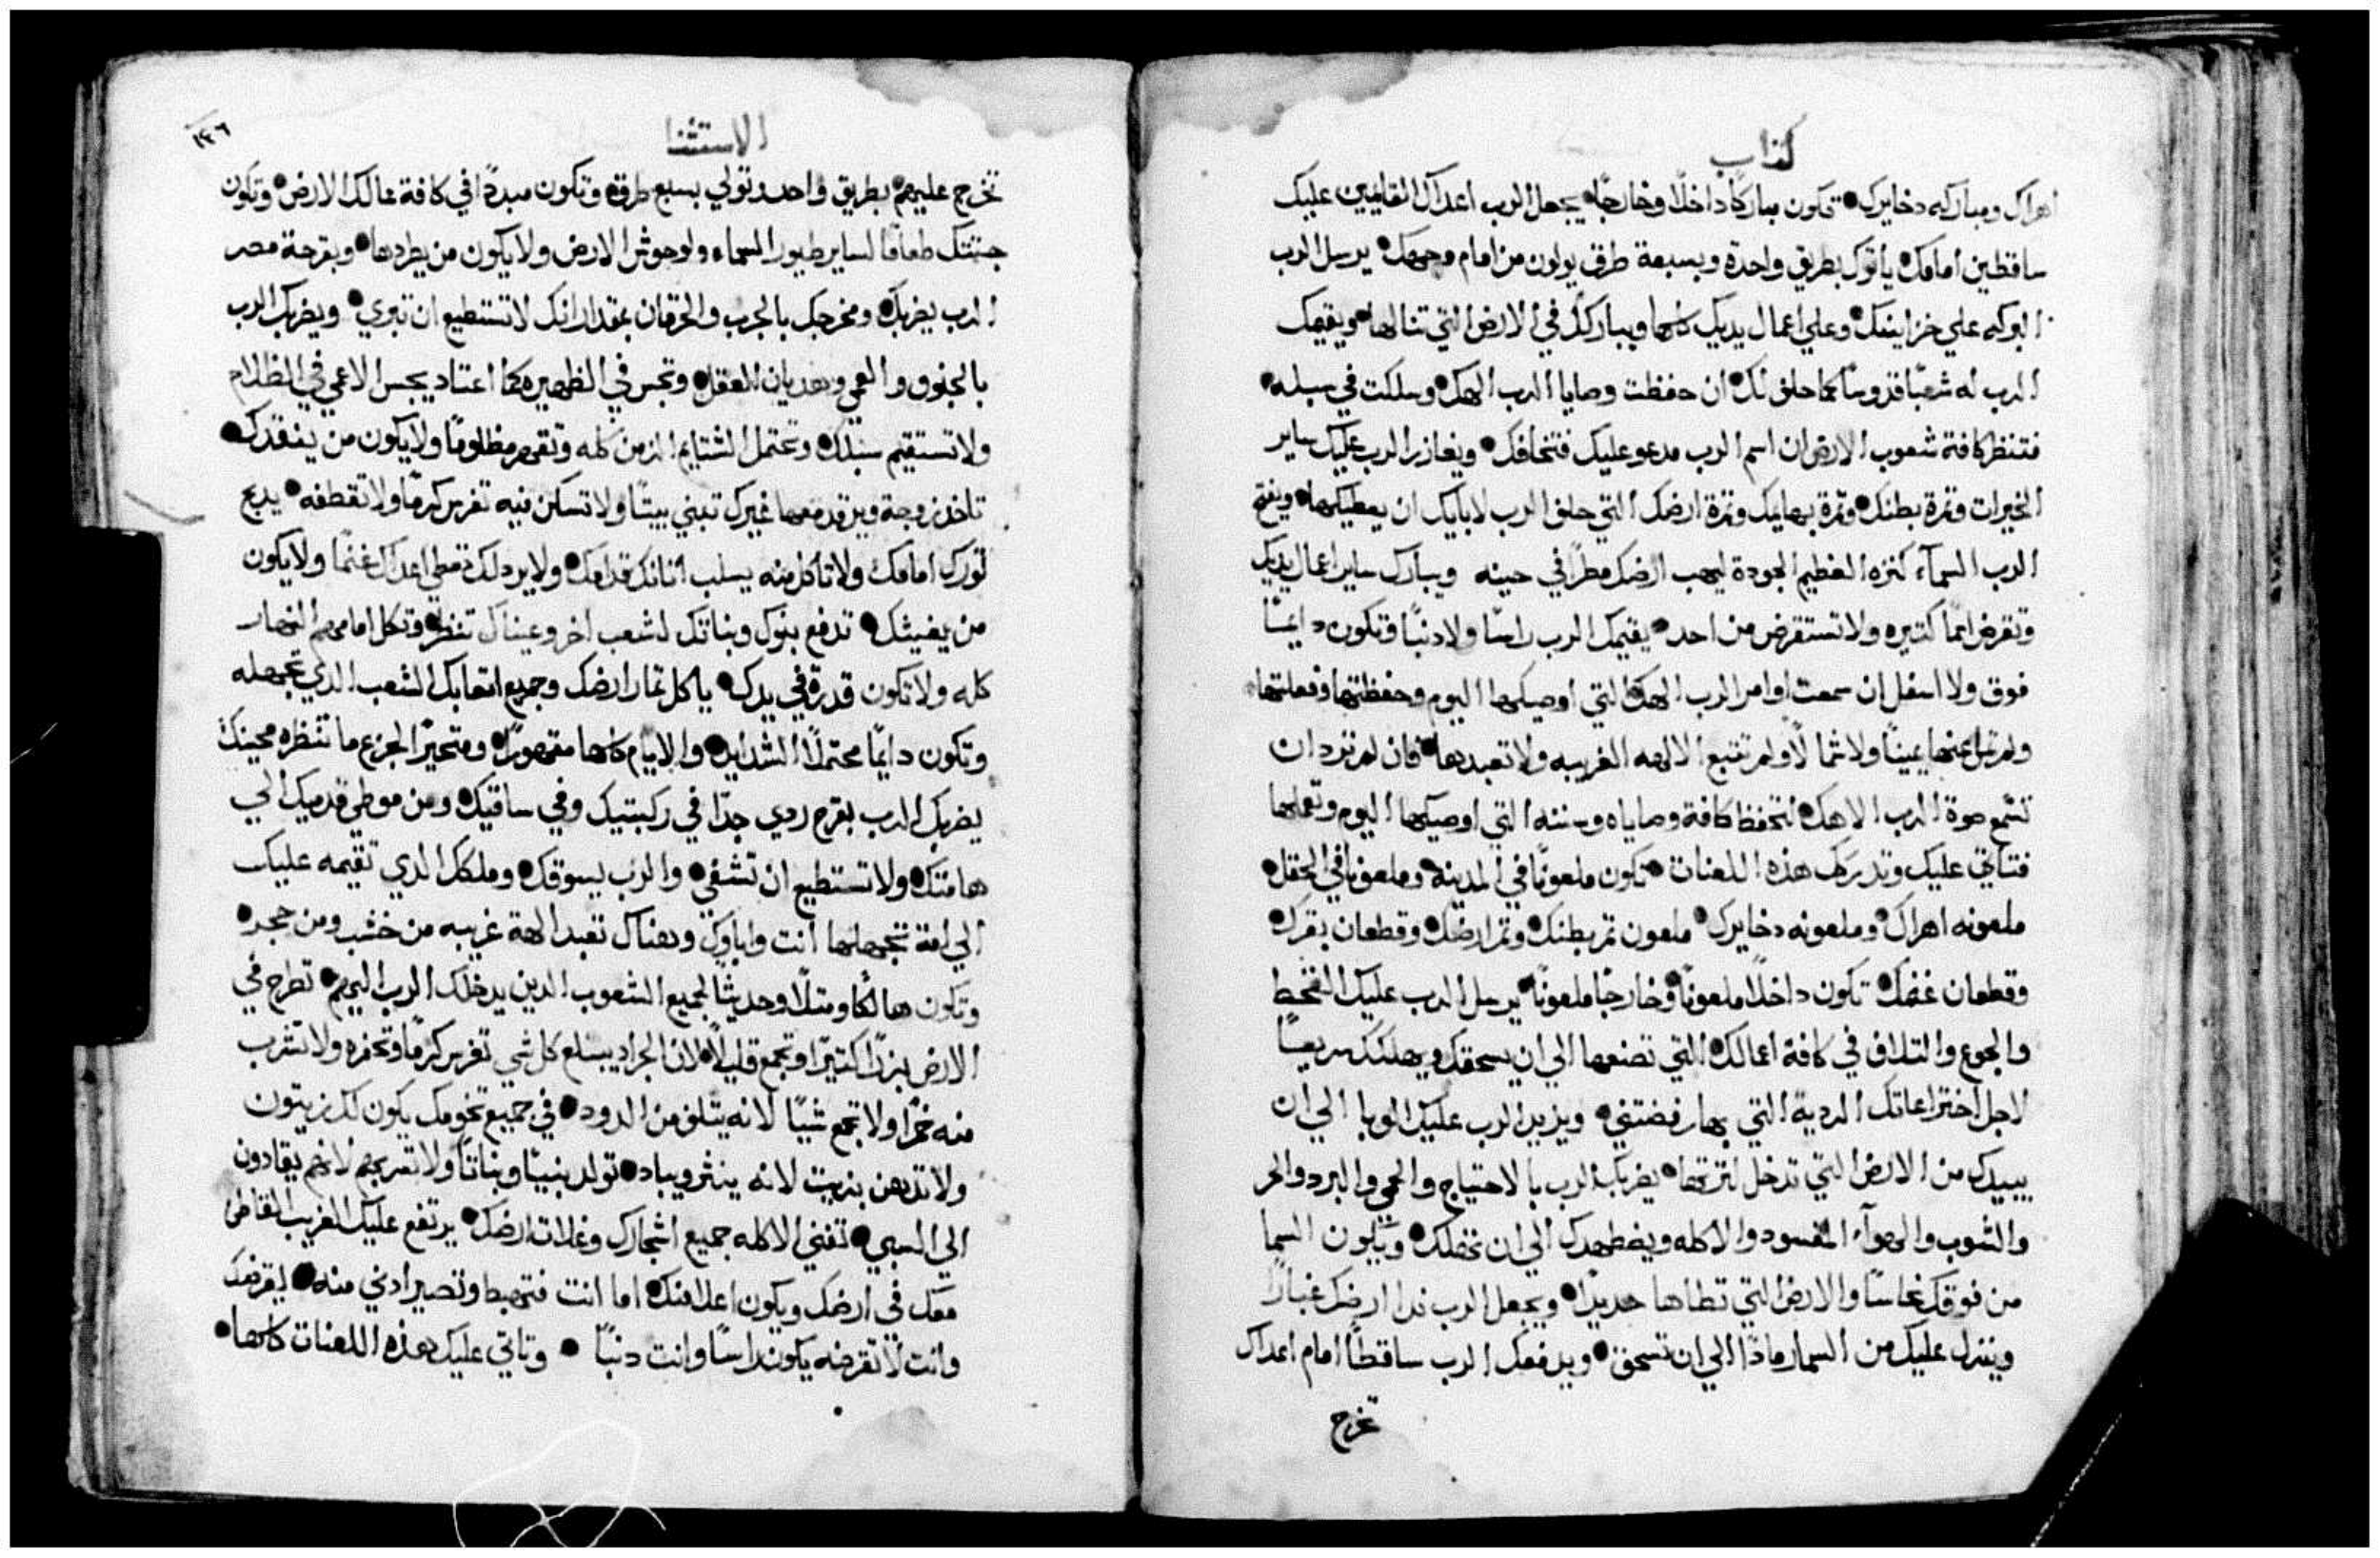 كتاب
اهراك ومباركه دخايرك • تكون مباركًا داخلًا وخارجًا • يجعل الرب اعداك القايمين عليك
ساقطين امامك • يأتوك بطريق واحدة وبسبعة طرق يولون من امام وجهك • يرسل الرب
البركه علي خزاينك • وعلي اعمال يديك كلها ويباركك في الارض التي تنالها • ويقيمك
الرب له شعبًا قدوسًا كما حلف لك • ان حفظت وصايا الرب الهك • وسلكت في سبله •
فتنظر كافة شعوب الارض ان اسم الرب مدعو عليك فتخافك • ويغازر الرب عليك ساير
الخيرات وتمرة بطنك • وتمرة بهايمك وتمرة ارضك التي حلف الرب لابايك ان يعطيكها • ويفتح
الرب السمآء كنزه العظيم الجودة ليهب ارضك مطرًا في حينه ويبارك ساير اعمال يديك
وتقرض اممًا كتيره ولا تستقرض من احد • يقيمك الرب راسًا ولا دنبًا وتكون دايمًا
فوق ولا اسفل ان سمعت اوامر الرب الهك • التي اوصيكها اليوم وحفظتها وفعلتها •
ولم تمل عنها يمينًا ولا شمالًا ولم تتبع الالهه الغريبه ولا تعبدها • فان لم ترد ان
تسمع صوة الرب الاهك • لتحفظ كافة وصاياه وسننه التي اوصيكها اليوم وتعملها
فتاتي عليك وتدركك هذه اللعنات • تكون ملعونًا في المدينة • وملعونًا في الحقل •
ملعونه اهراك • وملعونه دخايرك • ملعون تمر بطنك • وتمر ارضك • وقطعان بقرك •
وقطعان غنمك • تكون داخلًا ملعونًا • وخارجًا ملعونًا • يرسل الرب عليك القحط
والجوع والتلاف في كافة اعمالك • التي تصنعها الي ان يسحقك ويهلكك سريعًا
لاجل اختراعاتك الردية التي بها رفضتني • ويزيد الرب عليك الوبا الي ان
يبيدك من الارض التي تدخل لترتها • يضربك الرب بالاحتياج والحمي والبرد والحر
والشوب والهوآء المفسود والاكله ويضطهدك الي ان تهلك • وتكون السما
من فوقك نحاسًا والارض التي تطاها حديدًا • ويجعل الرب ندا ارضك غبارًا
وينزل عليك من السما رمادًا الي ان تسحق • ويدفعك الرب ساقطًا امام اعداك
تخرج
الاستثنا
١٣٦
تخرج عليهم • بطريق واحد وتولي بسبع طرق • وتكون مبددًا في كافة ممالك الارض • وتكون
جتتك طعامًا لساير طيور السماء ولوحوش الارض ولا يكون من يطردها • وبقرحة مصر
الرب يضربك • ومخرجك بالجرب والحرقان بمقدار انك لا تستطيع ان تبري • ويضربك الرب
بالجنون والعمي وهديان العقل • وتجس في الظهيره كما اعتاد يجس الاعمي في الظلام
ولا تستقيم سبلك • وتحتمل الشتايم الزمن كله وتقهر مظلومًا ولا يكون من ينقدك •
تاخد زوجة ويرقد معها غيرك تبني بيتًا ولا تسكن فيه تغرس كرمًا ولا تقطفه • يدبح
تورك امامك ولا تاكل منه يسلب اتانك قدامك • ولا يرد لك تعطي اعداك غنمًا ولا يكون
من يغيتك • تدفع بنوك وبناتك لشعب اخر وعيناك تنظر • وتكل امامهم النهار
كله ولا تكون قدرة في يدك • ياكل تمار ارضك وجميع اتعابك الشعب الدي تجهله
وتكون دايمًا محتملًا الشدايد • والايام كلها مقهورًا • ومتحيرًا لجزع ما تنظره عينك
يضربك الرب بقرح ردي جدًا في ركبتيك وفي ساقيك • ومن موطي قدميك الي
هامتك • ولا تستطيع ان تشفي • والرب يسوقك • وملكك الدي تقيمه عليك
الي امة تجهلها انت واباوك وهناك تعبد الهة غريبه من خشب ومن حجر •
وتكون هالكًا ومتلًا وحديثًا لجميع الشعوب الدين يدخلك الرب اليهم • تطرح في
الارض بزرًا كتيرًا وتجمع قليلًا • لان الجراد يبتلع كل شي تغرس كرمًا وتحفره ولا تشرب
منه خمرًا ولا تجمع شيئًا لانه يتلف من الدود • في جميع تخومك يكون لك زيتون
ولا تدهن بزيت لانه ينثر ويباد • تولد بنينًا وبناتًا ولا تفرح بهم لانهم يقادون
الي السبي • تفني الاكله جميع اشجارك وغلات ارضك • يرتفع عليك الغريب القاطن
معك في ارضك ويكون اعلا منك • اما انت فتهبط وتصير ادني منه • ليقرضك
وانت لا تقرضه يكون راسًا وانت دنبًا • وتاتي عليك هذه اللعنات كلها •